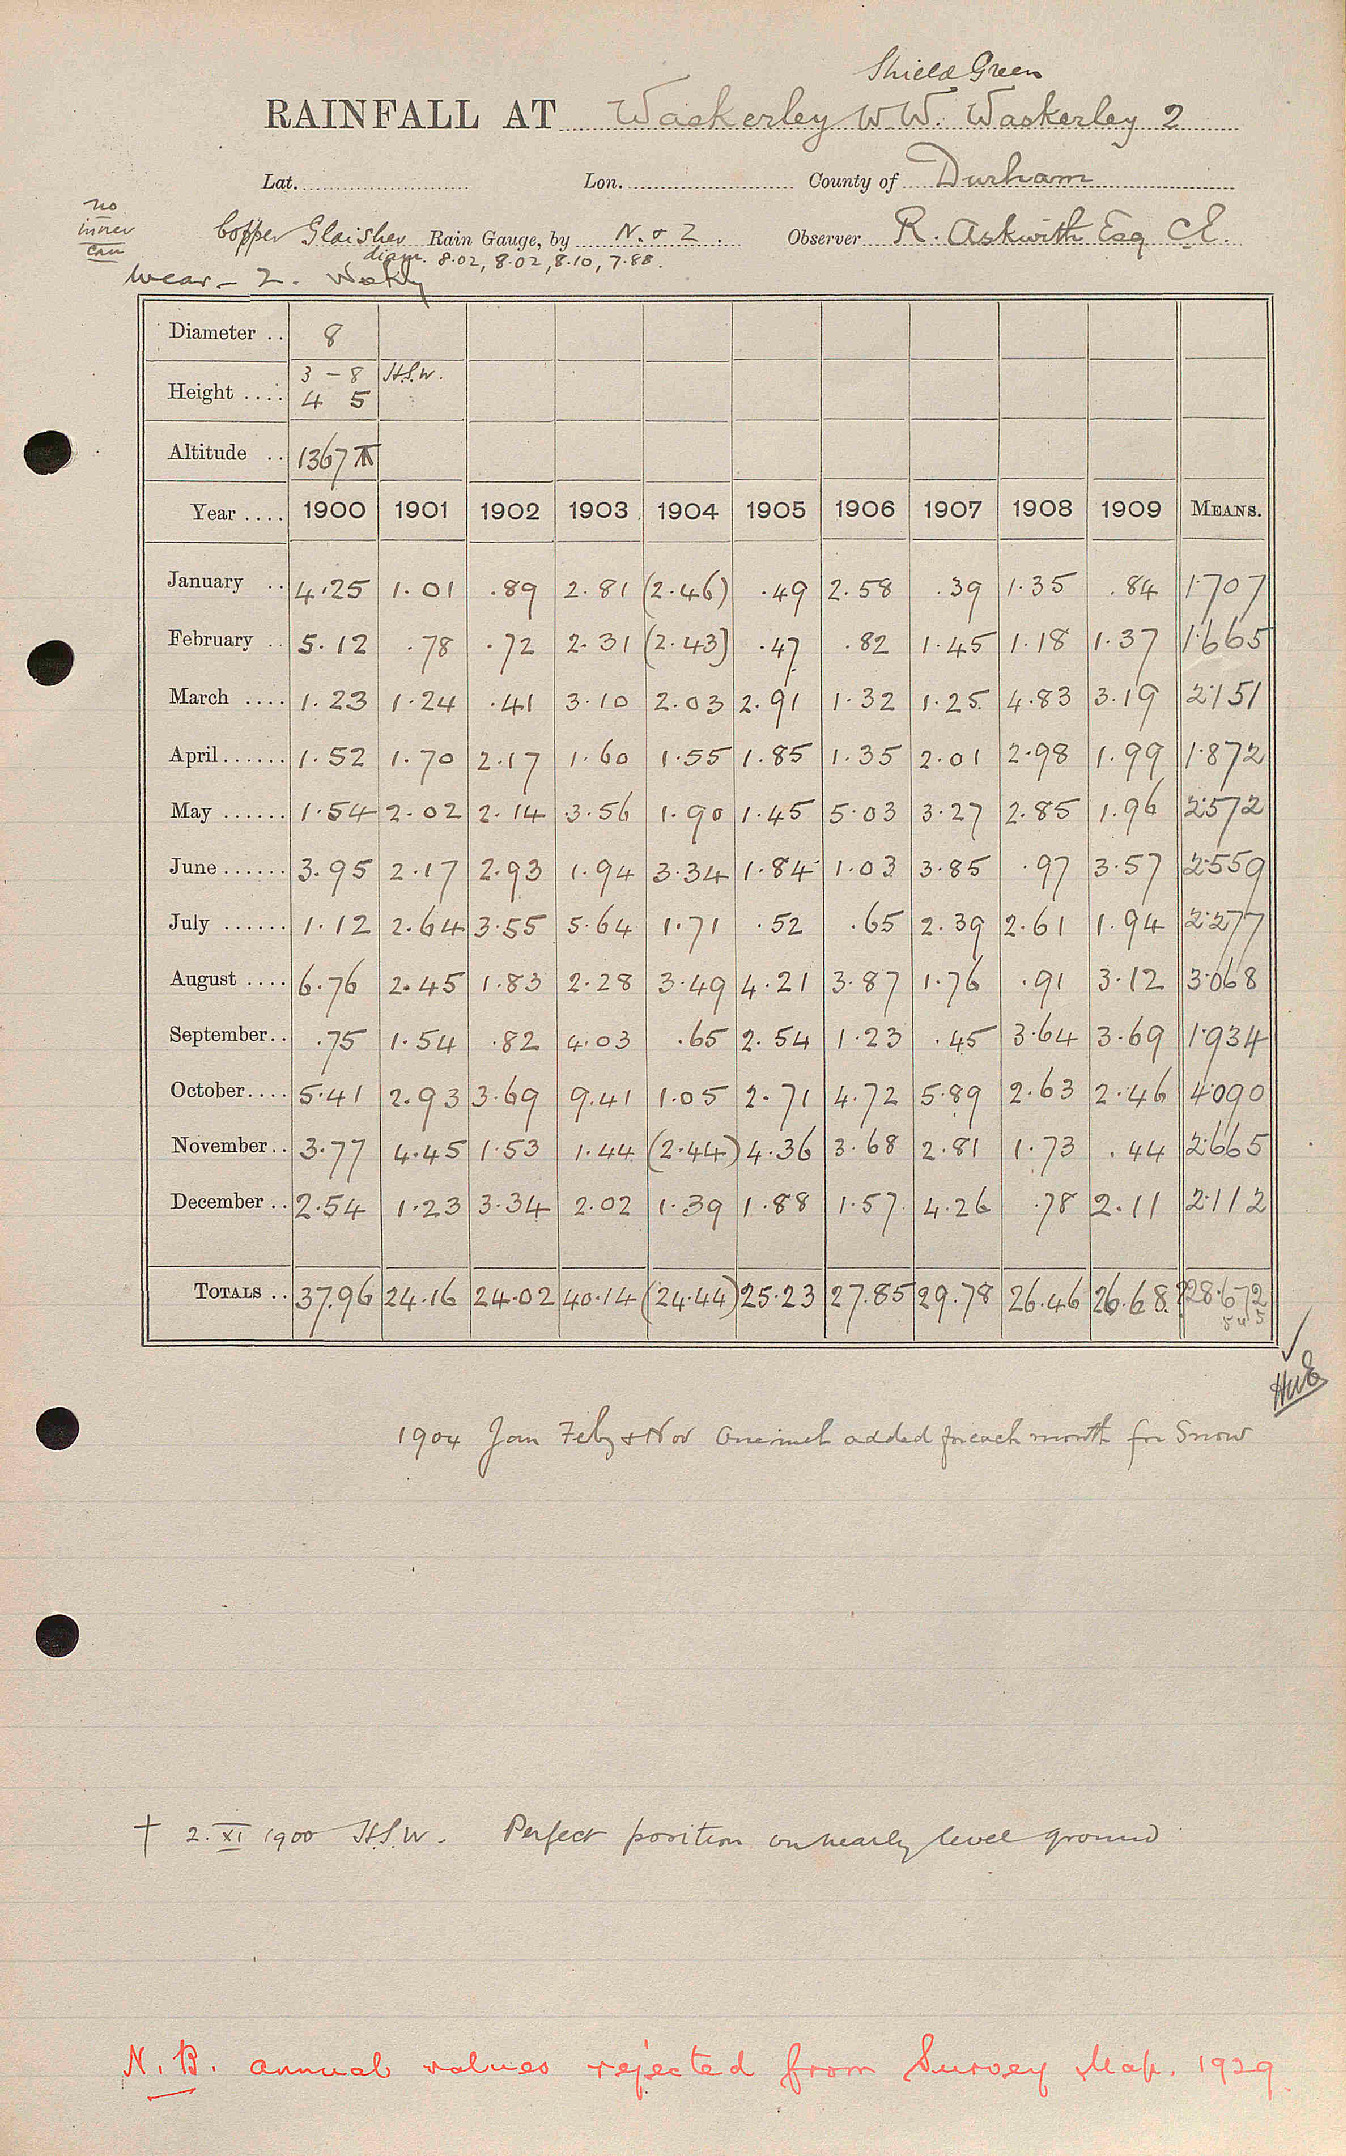 Shield Green
RAINFALL AT Waskerley W.W. Waskerley 2
Lat. Lon. County of Durham
no
inner
can
Copper Glaisher Rain Gauge, by N. & Z. Observer R. Askwith Esq C.E.
diam. 8.02, 8.02, 8.10, 7.88.
Wear - 2. Wekly
Diameter .. 8
Height .... 3 - 8 H.S.W.
4 5
Altitude .. 1367
Year .... 1900 1901 1902 1903 1904 1905 1906 1907 1908 1909 MEANS.
January .. 4.25 1.01 .89 2.81 (2.46) .49 2.58 .39 1.35 .84 1.707
February .. 5.12 .78 .72 2.31 (2.43) .47 .82 1.45 1.18 1.37 1.665
March .... 1.23 1.24 .41 3.10 2.03 2.91 1.32 1.25 4.83 3.19 2.151
April...... 1.52 1.70 2.17 1.60 1.55 1.85 1.35 2.01 2.98 1.99 1.872
May ...... 1.54 2.02 2.14 3.56 1.90 1.45 5.03 3.27 2.85 1.96 2.572
June ...... 3.95 2.17 2.93 1.94 3.34 1.84 1.03 3.85 .97 3.57 2.559
July ...... 1.12 2.64 3.55 5.64 1.71 .52 .65 2.39 2.61 1.94 2.277
August .... 6.76 2.45 1.83 2.28 3.49 4.21 3.87 1.76 .91 3.12 3.068
September.. .75 1.54 .82 4.03 .65 2.54 1.23 .45 3.64 3.69 1.934
October.... 5.41 2.93 3.69 9.41 1.05 2.71 4.72 5.89 2.63 2.46 4.090
November .. 3.77 4.45 1.53 1.44 (2.44) 4.36 3.68 2.81 1.73 .44 2.665
December .. 2.54 1.23 3.34 2.02 1.39 1.88 1.57 4.26 .78 2.11 2.112
TOTALS .. 37.96 24.16 24.02 40.14 (24.44) 25.23 27.85 29.78 26.46 26.68? 28.672
1904 Jan Feby & Nov One inch added for each month for Snow
† 2. XI 1900 H.S.W. Perfect position on nearly level ground
N.B. annual values rejected from Survey Map. 1929